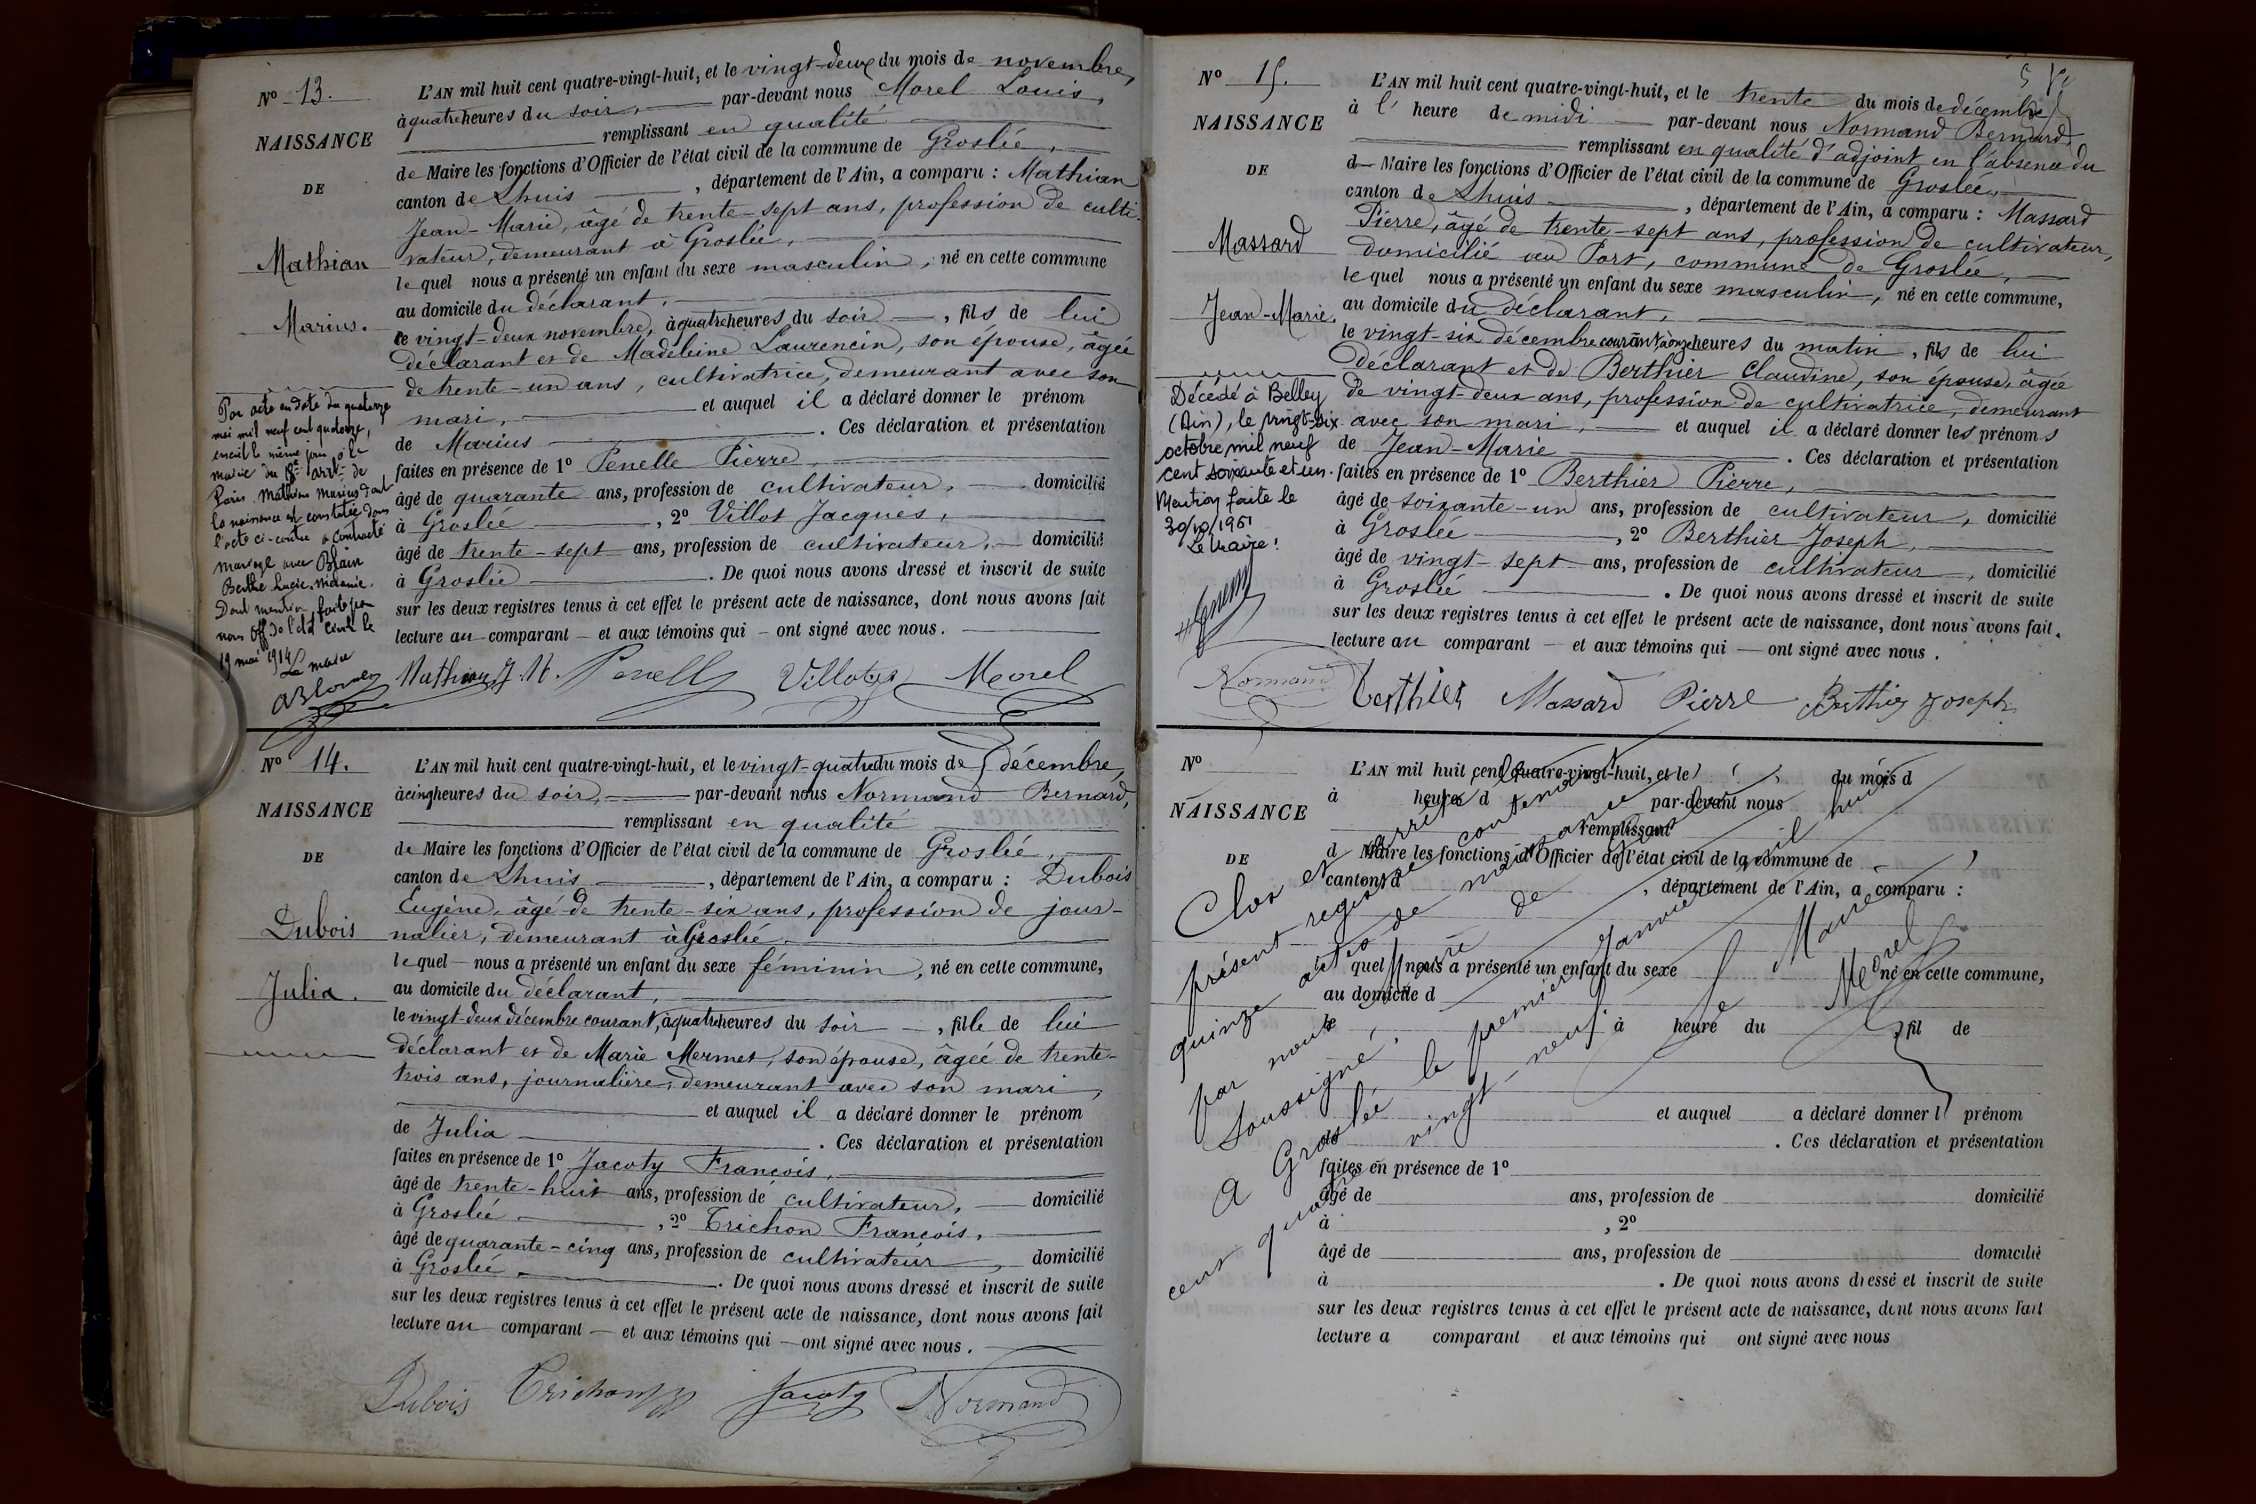 N° 13.
NAISSANCE
DE
Mathian
Marius.
L'AN mil huit cent quatre-vingt-huit, et le vingt-deux du mois de novembre,
à quatre heures du soir, par-devant nous Morel Louis,
remplissant en qualité
de Maire les fonctions d'Officier de l'état civil de la commune de Groslée,
canton de Lhuis, département de l'Ain, a comparu : Mathian
Jean-Marie, âgé de trente-sept ans, profession de culti-
vateur, demeurant à Groslée,
lequel nous a présenté un enfant du sexe masculin, né en cette commune
au domicile du déclarant,
le vingt-deux novembre, à quatre heures du soir, fils de lui
déclarant et de Madeleine Laurencin, son épouse, âgée
de trente-un ans, cultivatrice, demeurant avec son
mari, et auquel il a déclaré donner le prénom
de Marius. Ces déclaration et présentation
faites en présence de 1° Penelle Pierre,
âgé de quarante ans, profession de cultivateur, domicilié
à Groslée, 2° Villot Jacques,
âgé de trente-sept ans, profession de cultivateur, domicilié
à Groslée. De quoi nous avons dressé et inscrit de suite
sur les deux registres tenus à cet effet le présent acte de naissance, dont nous avons fait
lecture au comparant et aux témoins qui ont signé avec nous.
Par acte en date du quatorze
mai mil neuf cent quatorze,
inscrit le même jour à la
mairie du 18e arrt. de
Paris. Mathian Marius dont
la naissance est constatée dans
l'acte ci-contre a contracté
mariage avec Blain
Berthe Lucie Mélanie.
Dont mention faite par
nous Off. de l'état civil le
19 mai 1914
Le maire
Mathian J. M. Penelle Villot Morel
N° 14.
NAISSANCE
DE
Dubois
Julia.
L'AN mil huit cent quatre-vingt-huit, et le vingt-quatre du mois de décembre,
à cinq heures du soir, par-devant nous Normand Bernard,
remplissant en qualité
de Maire les fonctions d'Officier de l'état civil de la commune de Groslée,
canton de Lhuis, département de l'Ain, a comparu : Dubois
Eugène, âgé de trente-six ans, profession de jour-
nalier, demeurant à Groslée,
lequel nous a présenté un enfant du sexe féminin, né en cette commune,
au domicile du déclarant,
le vingt-deux décembre courant, à quatre heures du soir, fille de lui
déclarant et de Marie Mermet, son épouse, âgée de trente-
trois ans, journalière, demeurant avec son mari,
et auquel il a déclaré donner le prénom
de Julia. Ces déclaration et présentation
faites en présence de 1° Jacoty François,
âgé de trente-huit ans, profession de cultivateur, domicilié
à Groslée, 2° Trichon François,
âgé de quarante-cinq ans, profession de cultivateur, domicilié
à Groslée. De quoi nous avons dressé et inscrit de suite
sur les deux registres tenus à cet effet le présent acte de naissance, dont nous avons fait
lecture au comparant et aux témoins qui ont signé avec nous.
Dubois Trichon Jacoty Normand
N° 15.
NAISSANCE
DE
Massard
Jean-Marie.
L'AN mil huit cent quatre-vingt-huit, et le trente du mois de décembre
à l'heure de midi par-devant nous Normand Bernard,
remplissant en qualité d'adjoint en l'absence du
d Maire les fonctions d'Officier de l'état civil de la commune de Groslée,
canton de Lhuis, département de l'Ain, a comparu : Massard
Pierre, âgé de trente-sept ans, profession de cultivateur,
domicilié au Port, commune de Groslée,
lequel nous a présenté un enfant du sexe masculin, né en cette commune,
au domicile du déclarant,
le vingt-six décembre courant, à onze heures du matin, fils de lui
déclarant et de Berthier Claudine, son épouse, âgée
de vingt-deux ans, profession de cultivatrice, demeurant
avec son mari, et auquel il a déclaré donner les prénoms
de Jean-Marie. Ces déclaration et présentation
faites en présence de 1° Berthier Pierre,
âgé de soixante-un ans, profession de cultivateur, domicilié
à Groslée, 2° Berthier Joseph,
âgé de vingt-sept ans, profession de cultivateur, domicilié
à Groslée. De quoi nous avons dressé et inscrit de suite
sur les deux registres tenus à cet effet le présent acte de naissance, dont nous avons fait
lecture au comparant et aux témoins qui ont signé avec nous.
Décédé à Belley
(Ain), le vingt-six
octobre mil neuf
cent soixante et un.
Mention faite le
30/10/1961
Le Maire :
Normand Berthier Massard Pierre Berthier Joseph
N°
NAISSANCE
DE
L'AN mil huit cent quatre-vingt-huit, et le du mois d
à heure d par-devant nous
remplissant
d Maire les fonctions d'Officier de l'état civil de la commune de
canton d, département de l'Ain, a comparu :
quel nous a présenté un enfant du sexe né en cette commune,
au domicile d
le à heure du, fil de
et auquel a déclaré donner l prénom
de. Ces déclaration et présentation
faites en présence de 1°
âgé de ans, profession de domicilié
à, 2°
âgé de ans, profession de domicilié
à. De quoi nous avons dressé et inscrit de suite
sur les deux registres tenus à cet effet le présent acte de naissance, dont nous avons fait
lecture a comparant et aux témoins qui ont signé avec nous
Clos et arrêté le
présent registre contenant
quinze actes de naissance
par nous Maire de Groslée
soussigné,
A Groslée le premier Janvier mil huit
cent quatre vingt-neuf.
Le Maire,
Morel